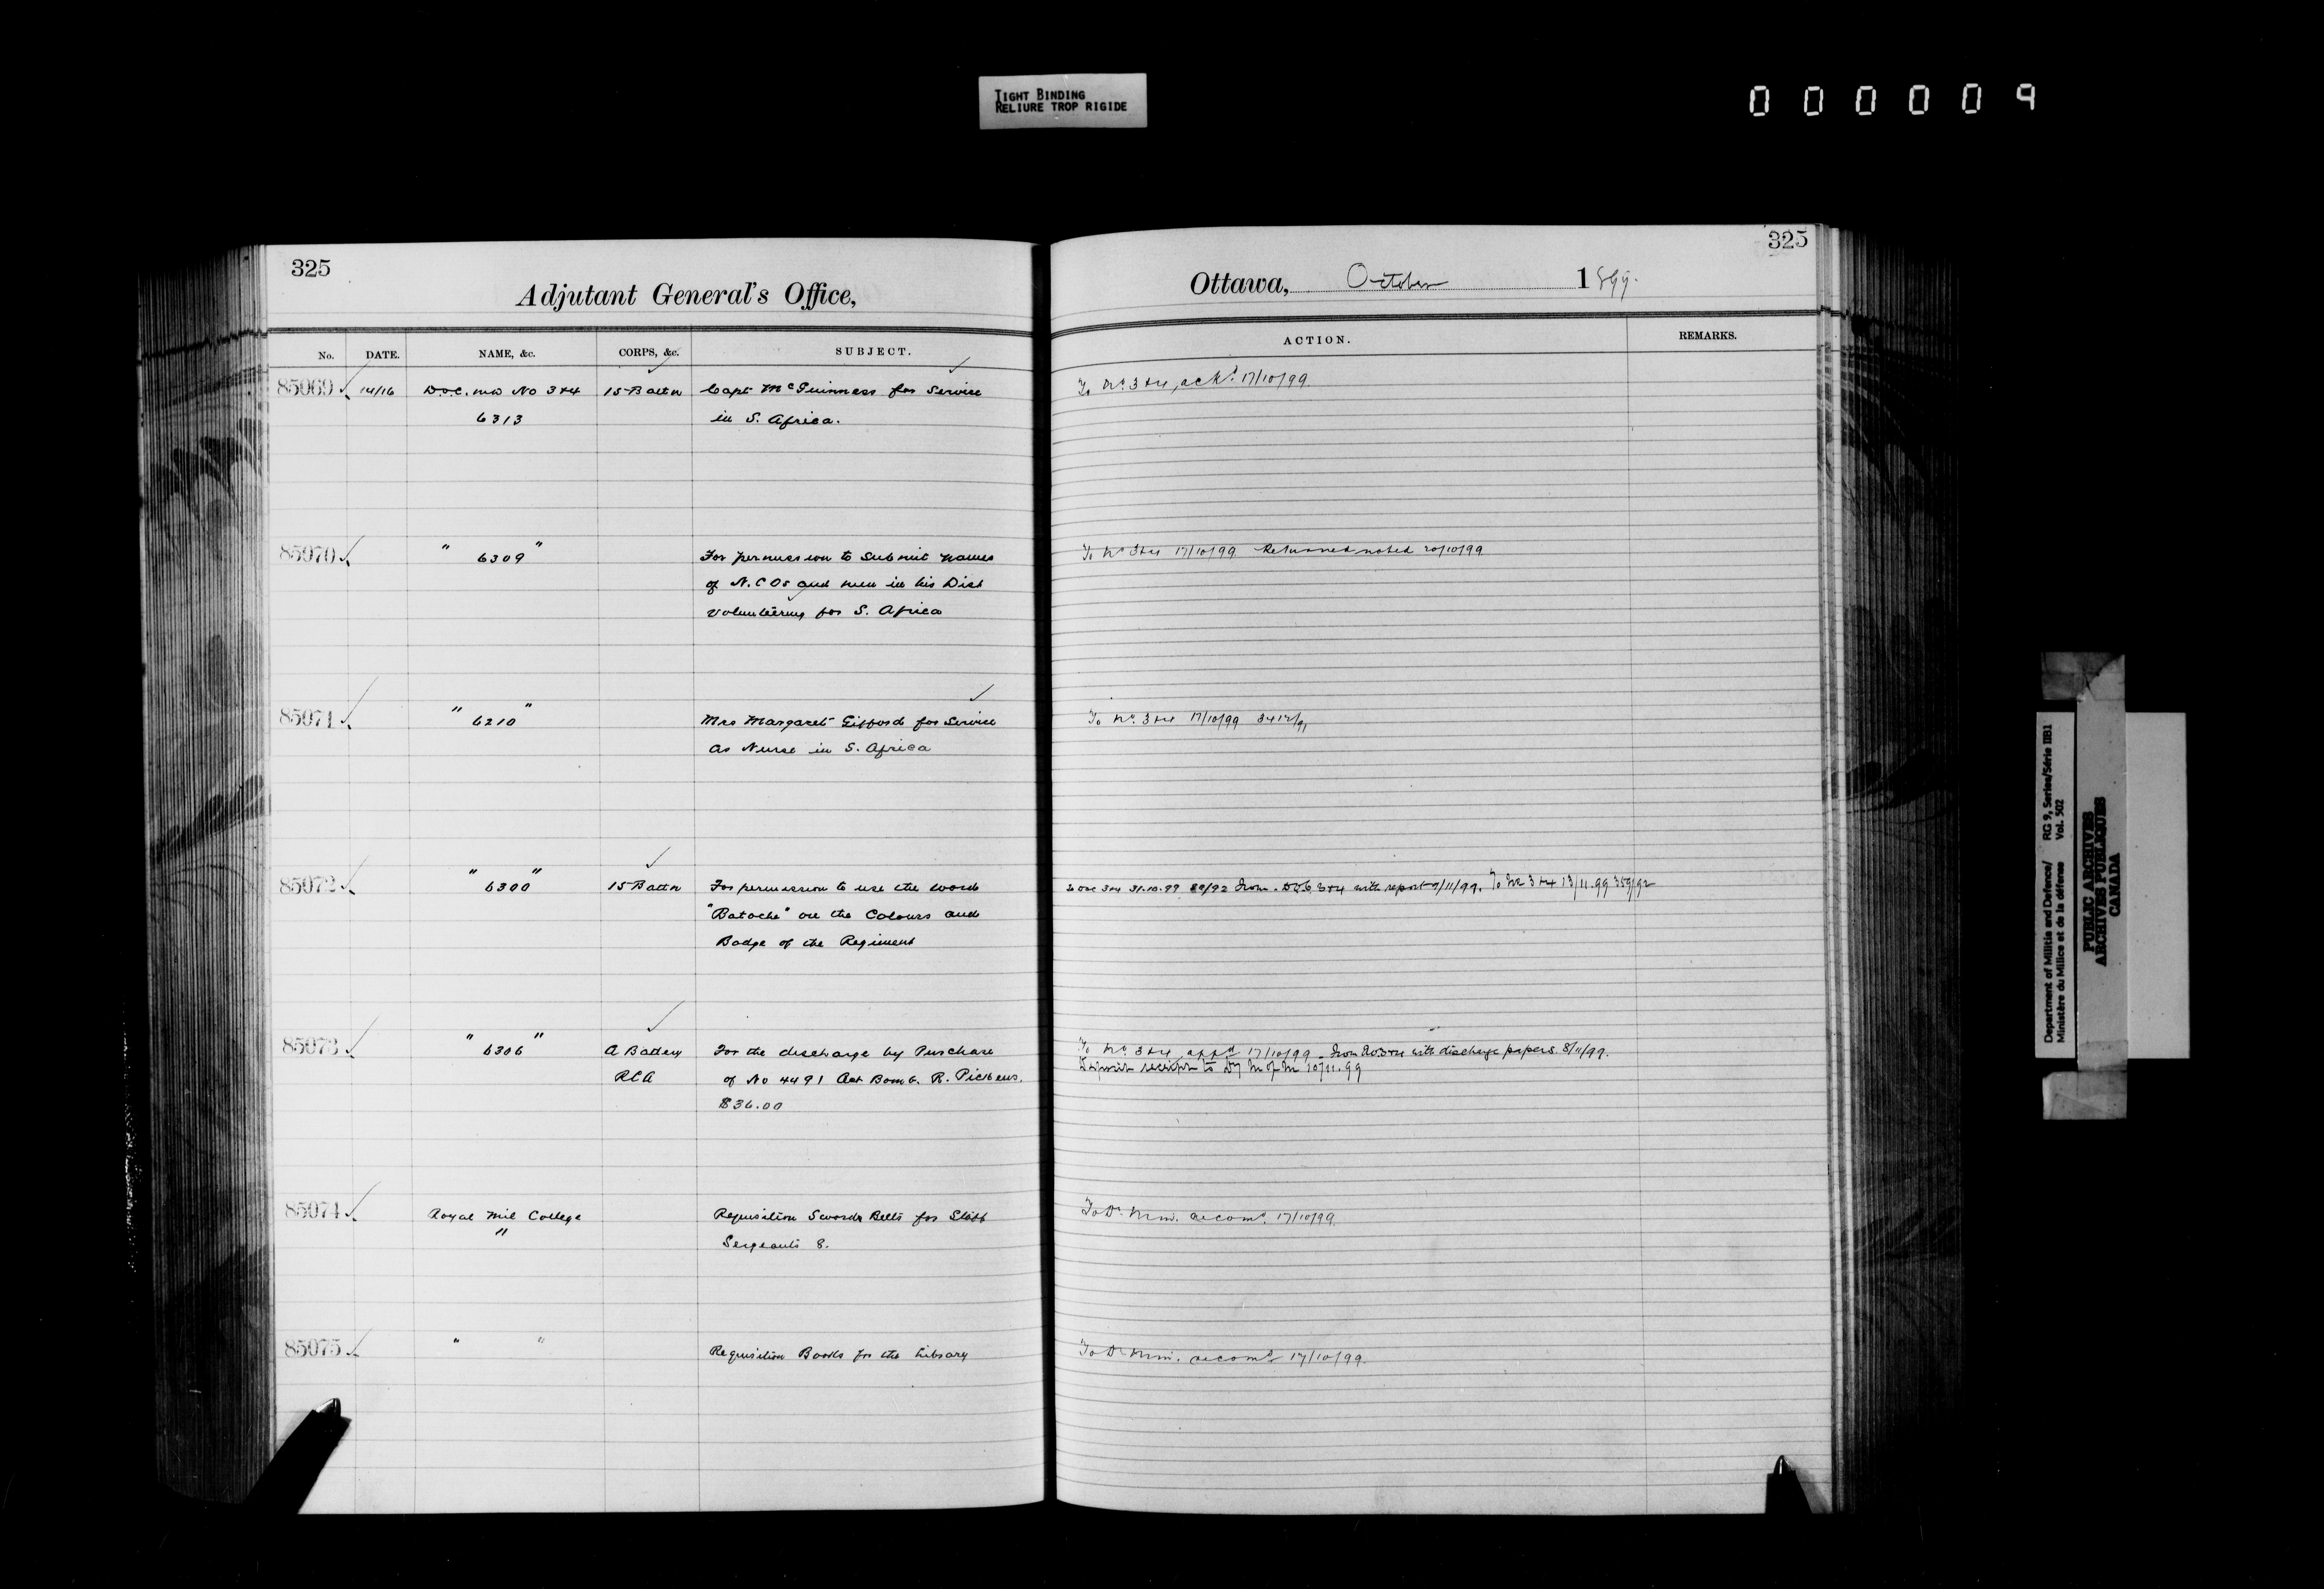 TIGHT BINDING
RELIURE TROP RIGIDE
000009
325
Adjutant General's Office,
No. DATE. NAME, &c. CORPS, &c. SUBJECT.
85069 14/16 D.O.C. MD No 3&4 15 Battn Capt McGuinness for Service
6313 in S. Africa.
85070 " 6309 " For permission to Submit names
of N.C.Os and men in his Dist
Volunteering for S. Africa
85071 " 6210 " Mrs Margaret Gifford for Service
as Nurse in S. Africa
85072 " 6300 " 15 Battn For permission to use the word
"Batoche" on the Colours and
Badge of the Regiment
85073 " 6306 " A Battery For the discharge by Purchase
RCA of No 4491 Act Bomb. R. Pickens.
$36.00
85074 Royal Mil College Requisition Swords Belts for Staff
" Sergeants 8.
85075 " " Requisition Books for the Library
325
Ottawa, October 1899.
ACTION. REMARKS.
To No. 3&4, ackd. 17/10/99.
To No 3&4 17/10/99 Returned noted 20/10/99
To No. 3&4 17/10/99 3412/91
To DOC 3&4 31.10.99 89/92 From D.O.C. 3&4 with report 9/11/99. To No 3&4 13/11.99 359/92
To No. 3&4, appd 17/10/99 - From DOC 3&4 with discharge papers. 8/11/99.
Deposit receipt to Dy M of M 10/11.99
To Dr. Mim. recomd. 17/10/99.
To Dr Mim. recomd 17/10/99.
Department of Militia and Defence/ RG 9, Series/Série IIB1
Ministère du Milice et de la défense Vol. 502
PUBLIC ARCHIVES
ARCHIVES PUBLIQUES
CANADA